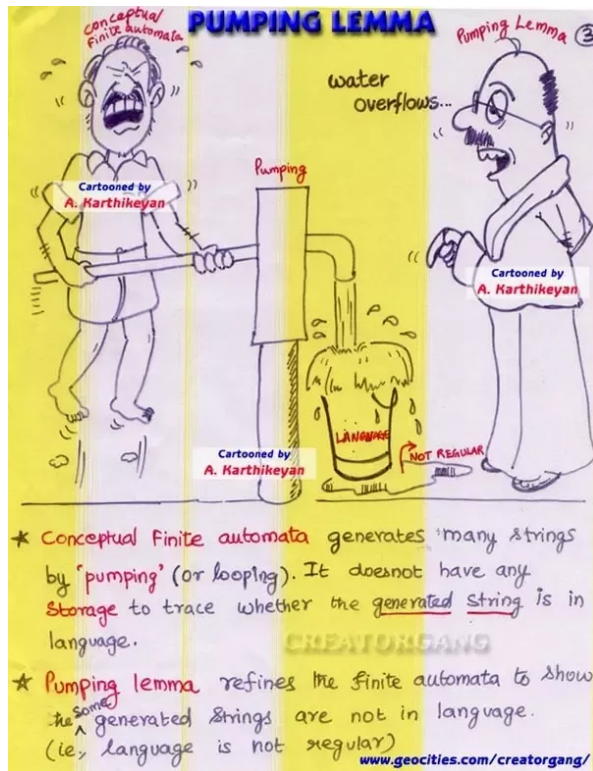 PUMPING LEMMA
conceptual
Finite automata
Pumping Lemma
3
water
overflows...
Pumping
Cartooned by
A. Karthikeyan
Cartooned by
A. Karthikeyan
LANGUAGE
NOT REGULAR
Cartooned by
A. Karthikeyan
* Conceptual Finite automata generates many strings
by 'pumping' (or looping). It doesnot have any
storage to trace whether the generated string is in
language.
CREATORGANG
* Pumping lemma refines the finite automata to show
the some generated strings are not in language.
(ie, language is not regular)
www.geocities.com/creatorgang/